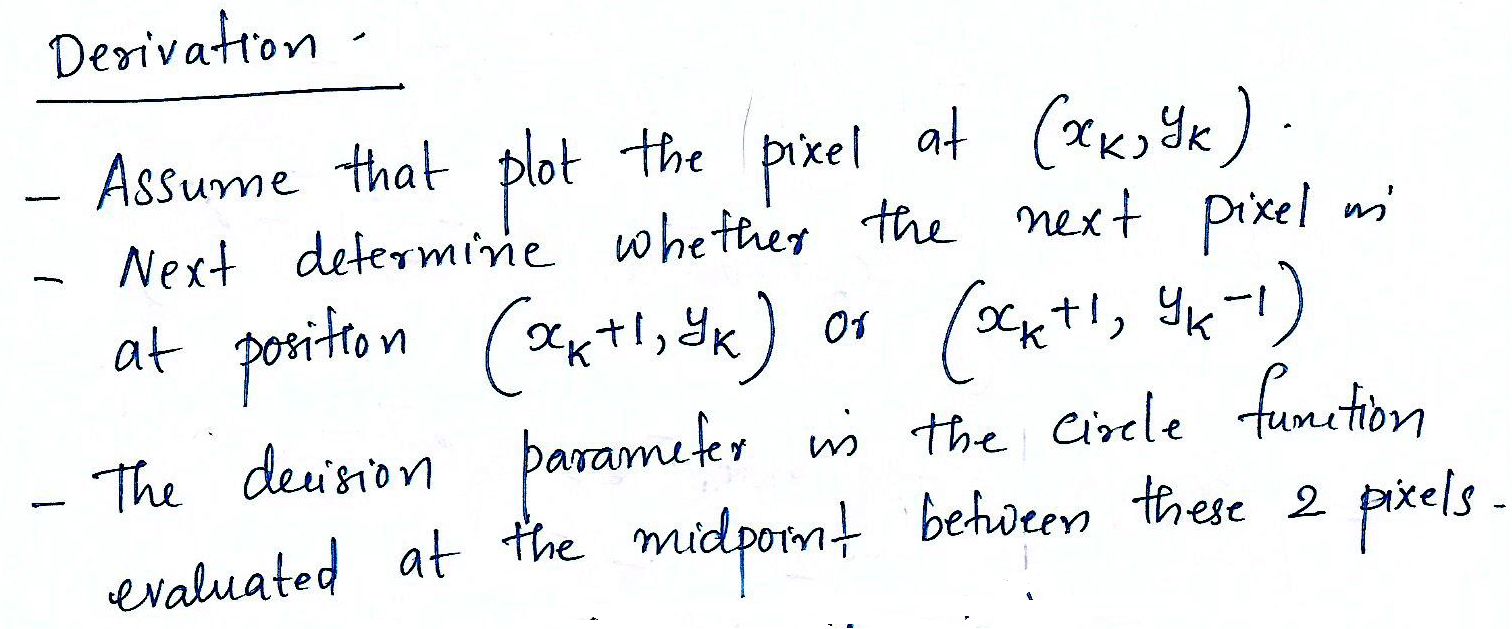 Derivation -
- Assume that plot the pixel at (xK, yK).
- Next determine whether the next pixel is
at position (xK+1, yK) or (xK+1, yK-1)
- The decision parameter is the circle function
evaluated at the midpoint between these 2 pixels.